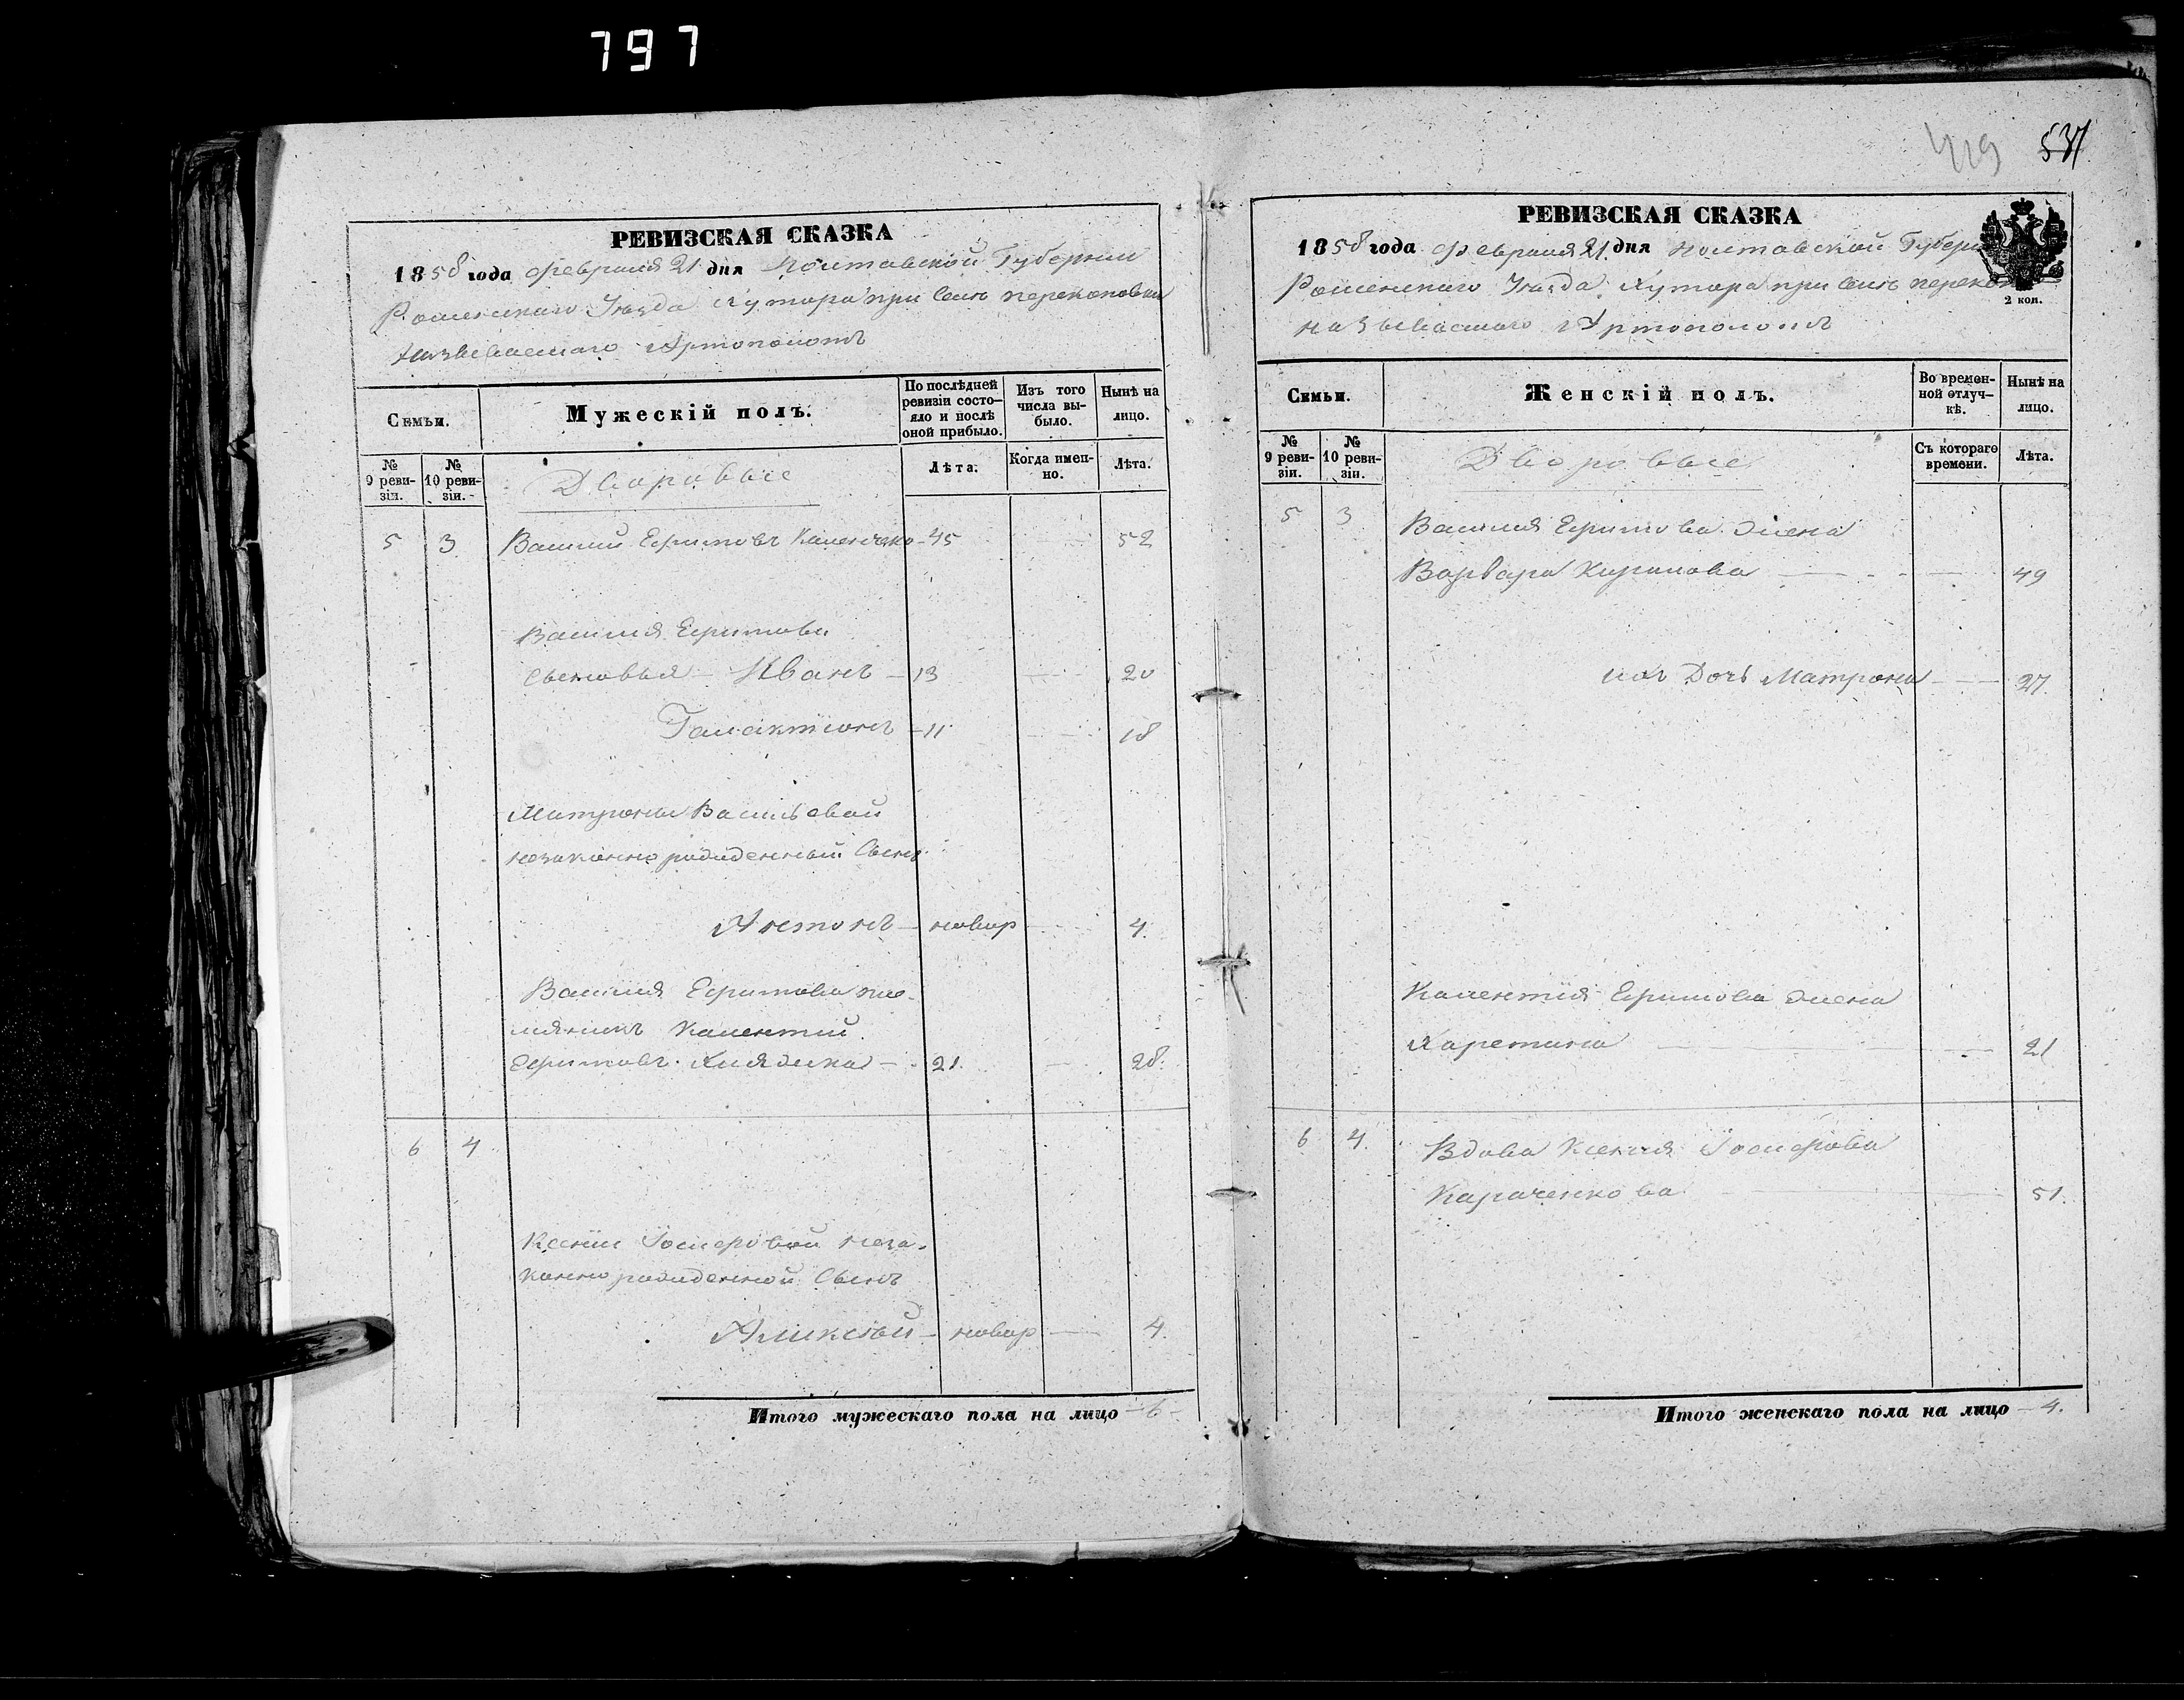 797
РЕВИЗСКАЯ СКАЗКА
1858 года февраля 21 дня Полтавской Губернии
Роменскаго Уѣзда Хутора при Селѣ Перекоповки
называемаго Артополотъ
Семьи.
Мужескій полъ.
По послѣдней ревизіи состояло и послѣ оной прибыло.
Изъ того числа выбыло.
Нынѣ на лицо.
№ 9 ревизіи.
№ 10 ревизіи.
Дворовые
Лѣта.
Когда именно.
Лѣта.
5 3 Василий Ефимовъ Каленченко - 45 52
Василия Ефимова
сыновья - Иванъ - 13 20
Галактионъ - 11 18
Матроны Васильевой
незаконно рожденный Сынъ
Антонъ - новор 4.
Василия Ефимова пле-
мянникъ Калентий
Ефимовъ 21. 28.
6 4
Ксении Иосифовой неза-
конно рожденной Сынъ
Аликсѣй - новор 4.
Итого мужескаго пола на лицо - 6 -
537
РЕВИЗСКАЯ СКАЗКА
1858 года февраля 21 дня Полтавской Губерн
Роменскаго Уѣзда Хутора при Селѣ Переко
называемаго Артополотъ
2 коп.
Семьи.
Женскій полъ.
Во временной отлучкѣ.
Нынѣ на лицо.
№ 9 ревизіи.
№ 10 ревизіи.
Дворовые
Съ котораго времени.
Лѣта.
5 3 Василия Ефимова жена
Варвара Кирилова 49
ихъ Дочь Матрона 27.
Калентия Ефимова жена
Харетина 21
6 4. Вдова Ксения Иосифова
Карпченкова 51.
Итого женскаго пола на лицо - 4.